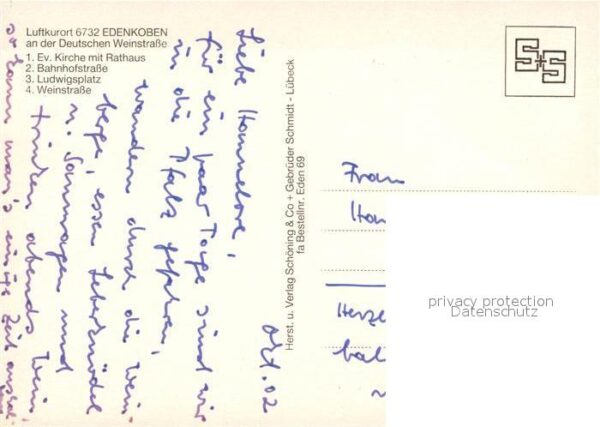 Luftkurort 6732 EDENKOBEN
an der Deutschen Weinstraße
1. Ev. Kirche mit Rathaus
2. Bahnhofstraße
3. Ludwigsplatz
4. Weinstraße
Okt. 02
Liebe Hannelore,
für ein paar Tage sind wir
in die Pfalz gefahren,
wandern durch die Wein
berge, essen Leberknödel
u. Saumagen und
trinken abends Wein
so kann man's einige Zeit aushal
Herst. u. Verlag Schöning & Co + Gebrüder Schmidt - Lübeck
fa Bestellnr. Eden 69
S+S
Frau
Han
Herze
bal
privacy protection
Datenschutz